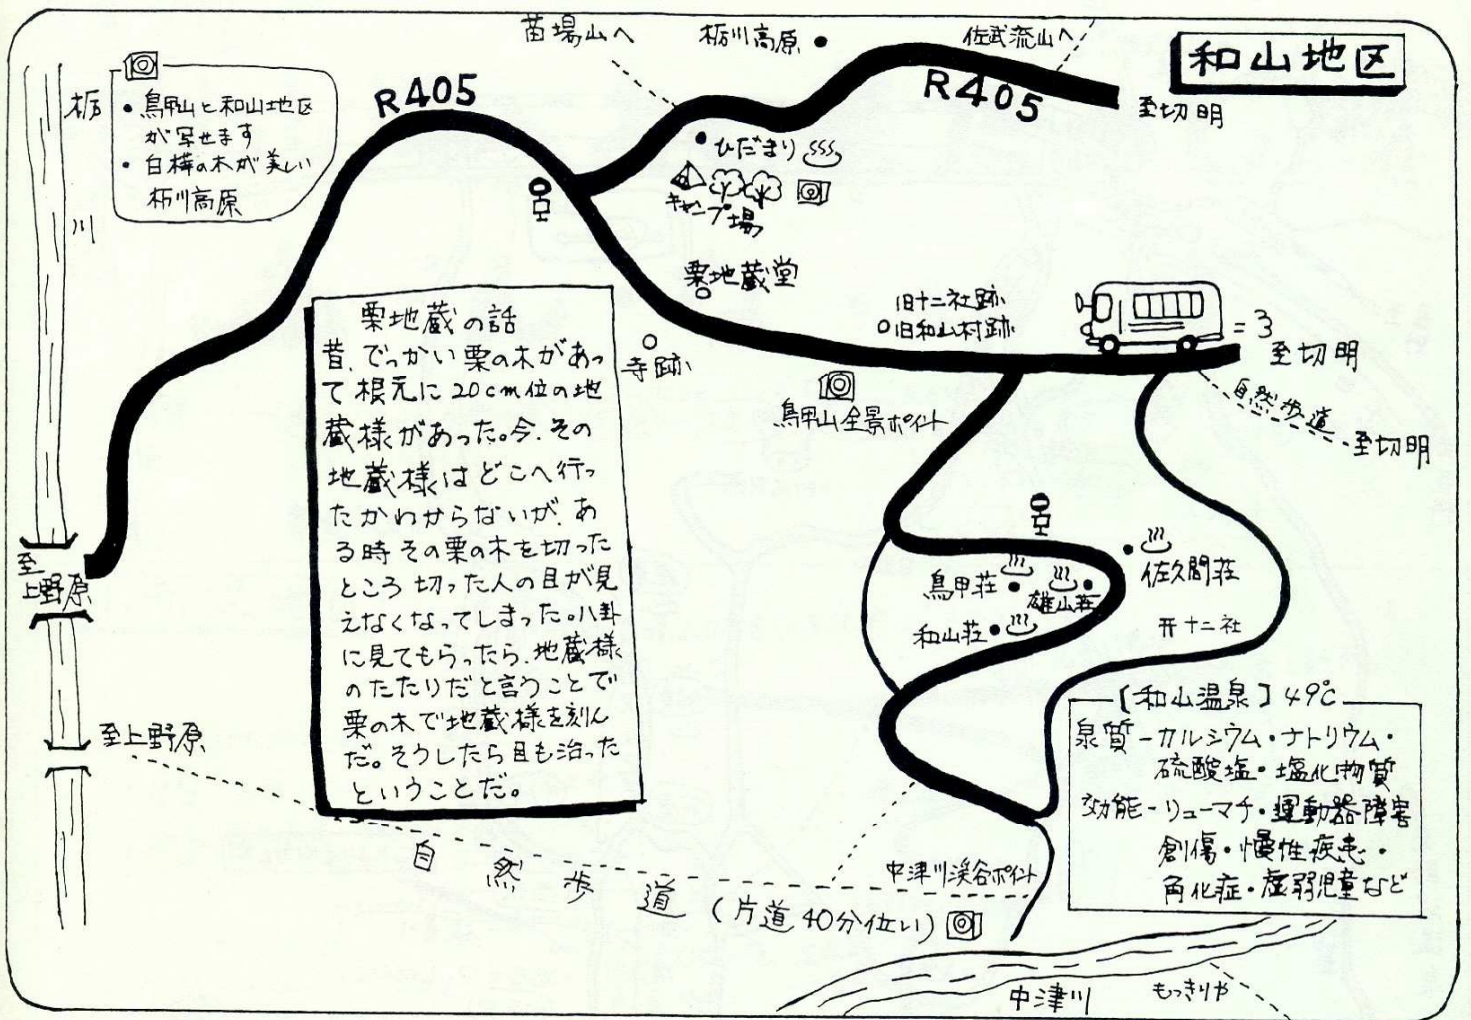 和山地区
苗場山へ
栃川高原
佐武流山へ
R405
R405
至切明
栃
川
• 鳥甲山と和山地区
が写せます
• 白樺の木が美しい
栃川高原
ひだまり
キャンプ場
栗地蔵堂
旧十二社跡
旧和山村跡
至切明
寺跡
鳥甲山全景ポイント
自然歩道
至切明
栗地蔵の話
昔、でっかい栗の木があっ
て根元に20cm位の地
蔵様があった。今、その
地蔵様はどこへ行っ
たかわからないが、あ
る時その栗の木を切った
ところ切った人の目が見
えなくなってしまった。八卦
に見てもらったら、地蔵様
のたたりだと言うことで
栗の木で地蔵様を刻ん
だ。そうしたら目も治った
ということだ。
至
上野原
鳥甲荘
雄山荘
佐久間荘
和山荘
十二社
至上野原
【和山温泉】49℃
泉質-カルシウム・ナトリウム・
硫酸塩・塩化物質
効能-リューマチ・運動器障害
創傷・慢性疾患・
角化症・虚弱児童など
自然歩道(片道40分位い)
中津川渓谷ポイント
中津川
もっきりや